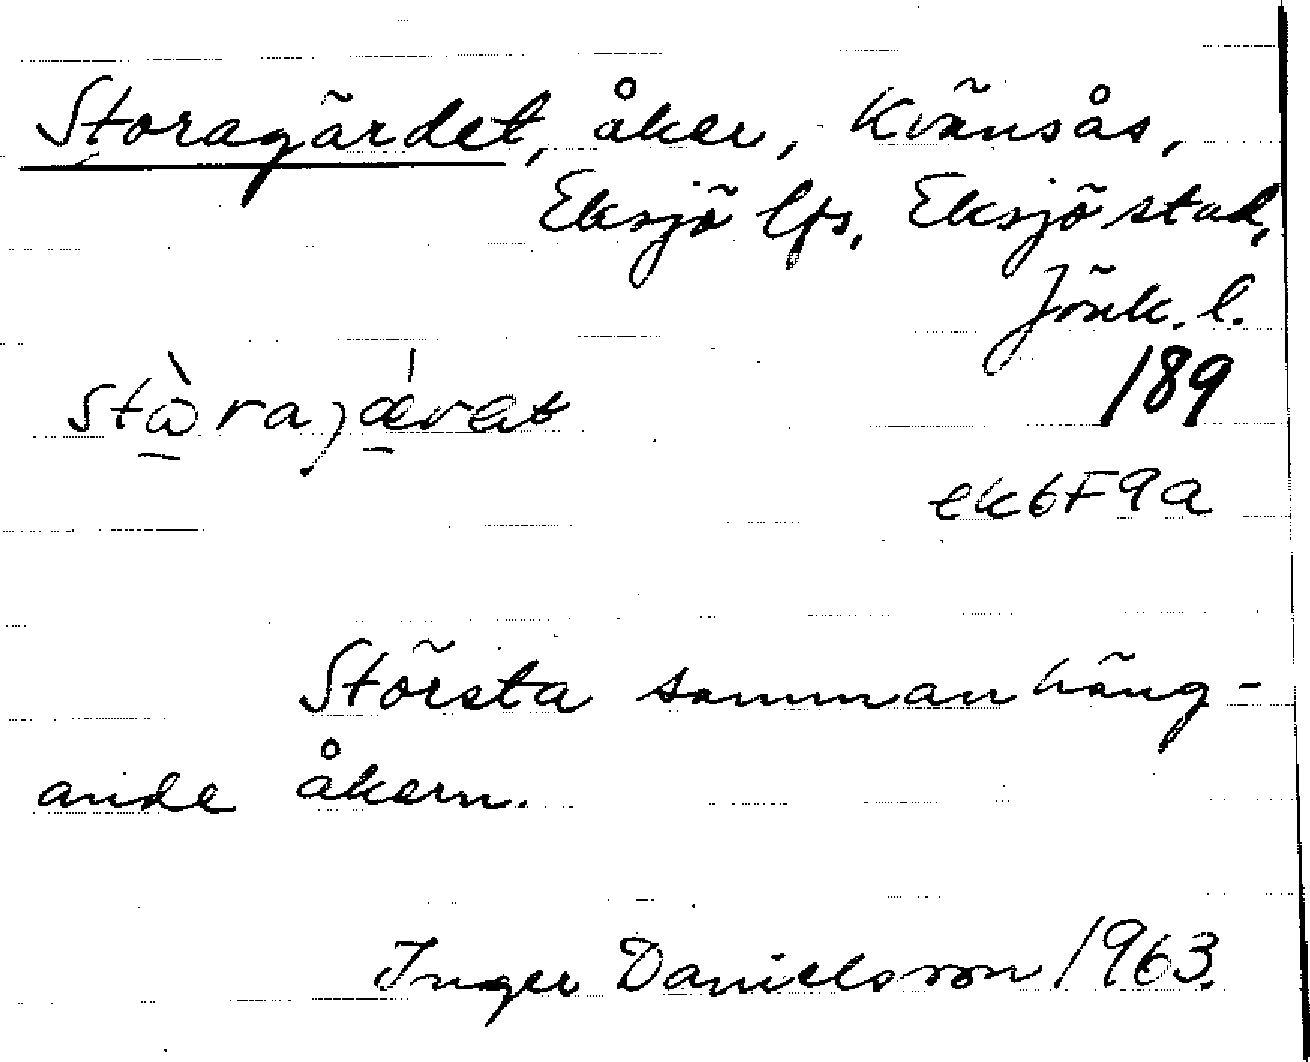 Storagärdet, åker, Kvänsås,
Eksjö lfs, Eksjö stad,
Jönk. l.
189
stòrajǽrat
ek6F9a
Största sammanhäng-
ande åkern.
Inger Danielsson 1963.